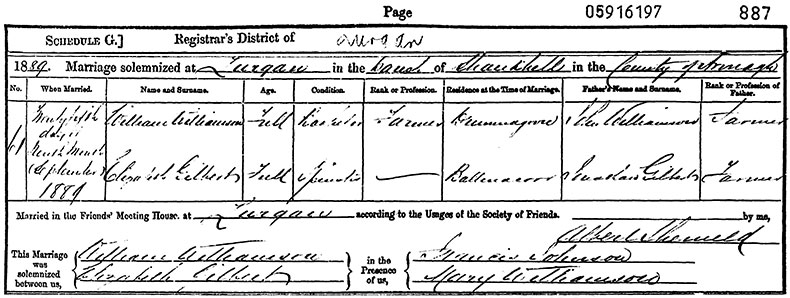 Page 05916197 887
SCHEDULE G.] Registrar's District of Lurgan
1889. Marriage solemnized at Lurgan in the Parish of Shankill in the County of Armagh
No. When Married. Name and Surname. Age. Condition. Rank or Profession. Residence at the Time of Marriage. Father's Name and Surname. Rank or Profession of Father.
61 Twenty fifth day of Ninth Month (September) 1889 William Williamson Full Bachelor Farmer Drumnagoon John Williamson Farmer
Elizabeth Gilbert Full Spinster — Ballenacor Gilbert Farmer
Married in the Friends' Meeting House. at Lurgan according to the Usages of the Society of Friends. by me,
Albert
This Marriage was solemnized between us, William Williamson Elizabeth Gilbert in the Presence of us, Francis Johnson Mary Williamson